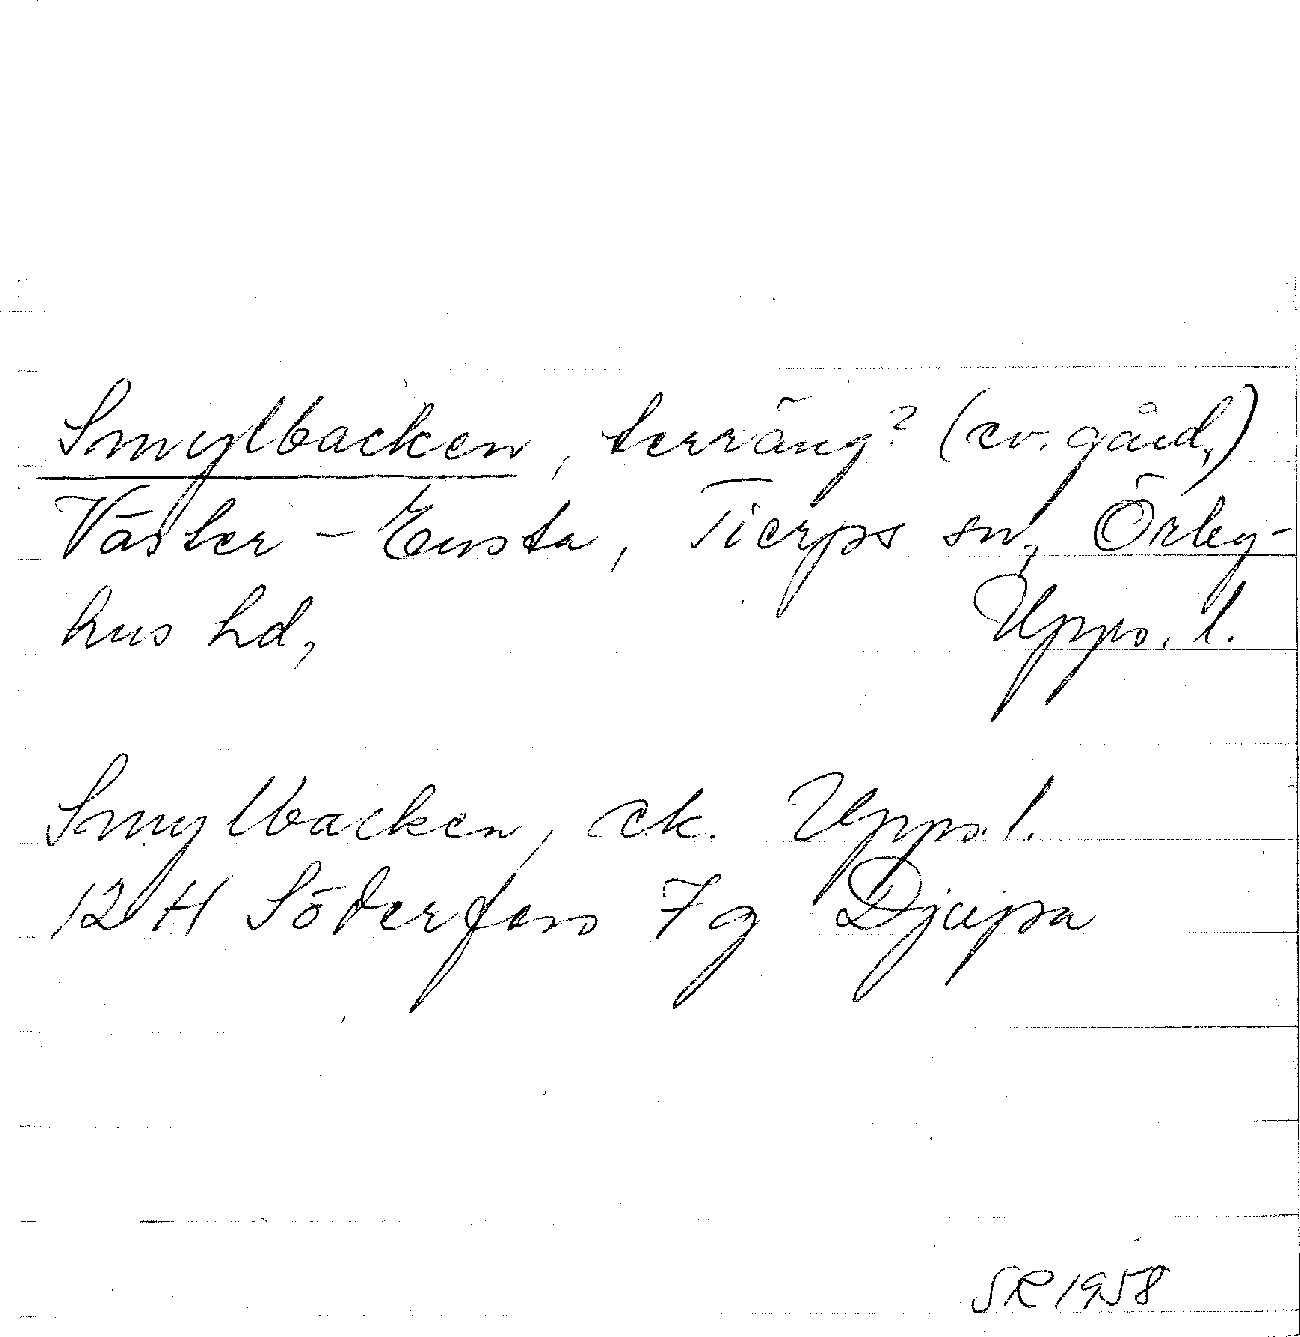 Smylbacken, terräng? (ev. gård,)
Väster-Ensta, Tierps sn, Örby-
hus hd, Upps. l.
Smylbacken, ek. Upps. l.
12 H Söderfors 7 g Djupa
SR 1958